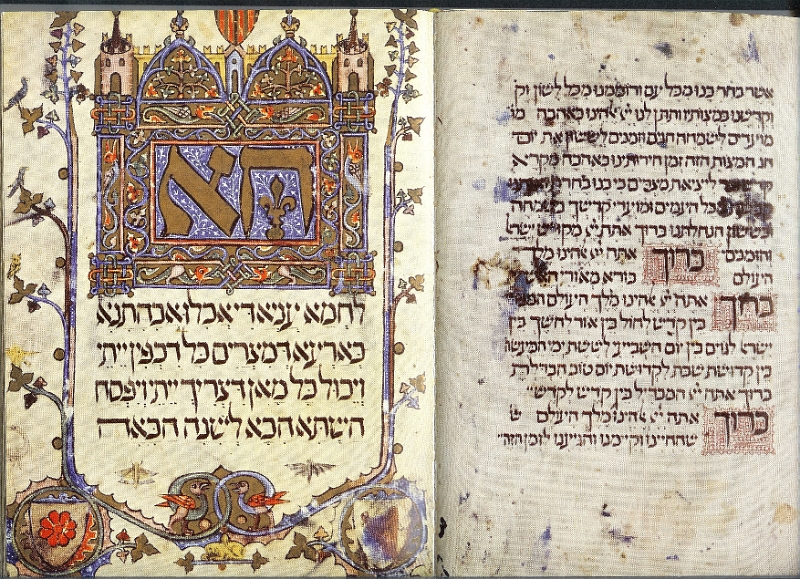 אשר בחר בנו מכל עם ורוממנו מכל לשון וק
וקדשנו במצותיו ותתן לנו ייי אלהינו באהבה מו
מועדים לשמחה חגים וזמנים לששון את יום
חג המצות הזה זמן חירותינו באהבה מקרא
קדש ליציאת מצרים כי בנו בחרת
כל העמים ומועדי קדשך בשמחה
ובששון הנחלתנו ברוך אתה ייי מקדש ישרא
והזמנים ברוך אתה ייי אלהינו מלך
העולם בורא מאורי
ברוך אתה ייי אלהינו מלך העולם
בין קדש לחול בין אור לחשך בין
ישרא לגוים בין יום השביעי לששת ימי המעשה
בין קדושת שבת לקדושת יום טוב הבדלת
ברוך אתה ייי המבדיל בין קדש לקדש
ברוך אתה ייי אלהינו מלך העולם ש
שהחיינו וקיימנו והגיענו לזמן הזה
הא
לחמא עניא די אכלו אבהתנא
בארעא דמצרים כל דכפין ייתי
ויכול כל מאן דצריך ייתי ויפסח
השתא הכא לשנה הבאה